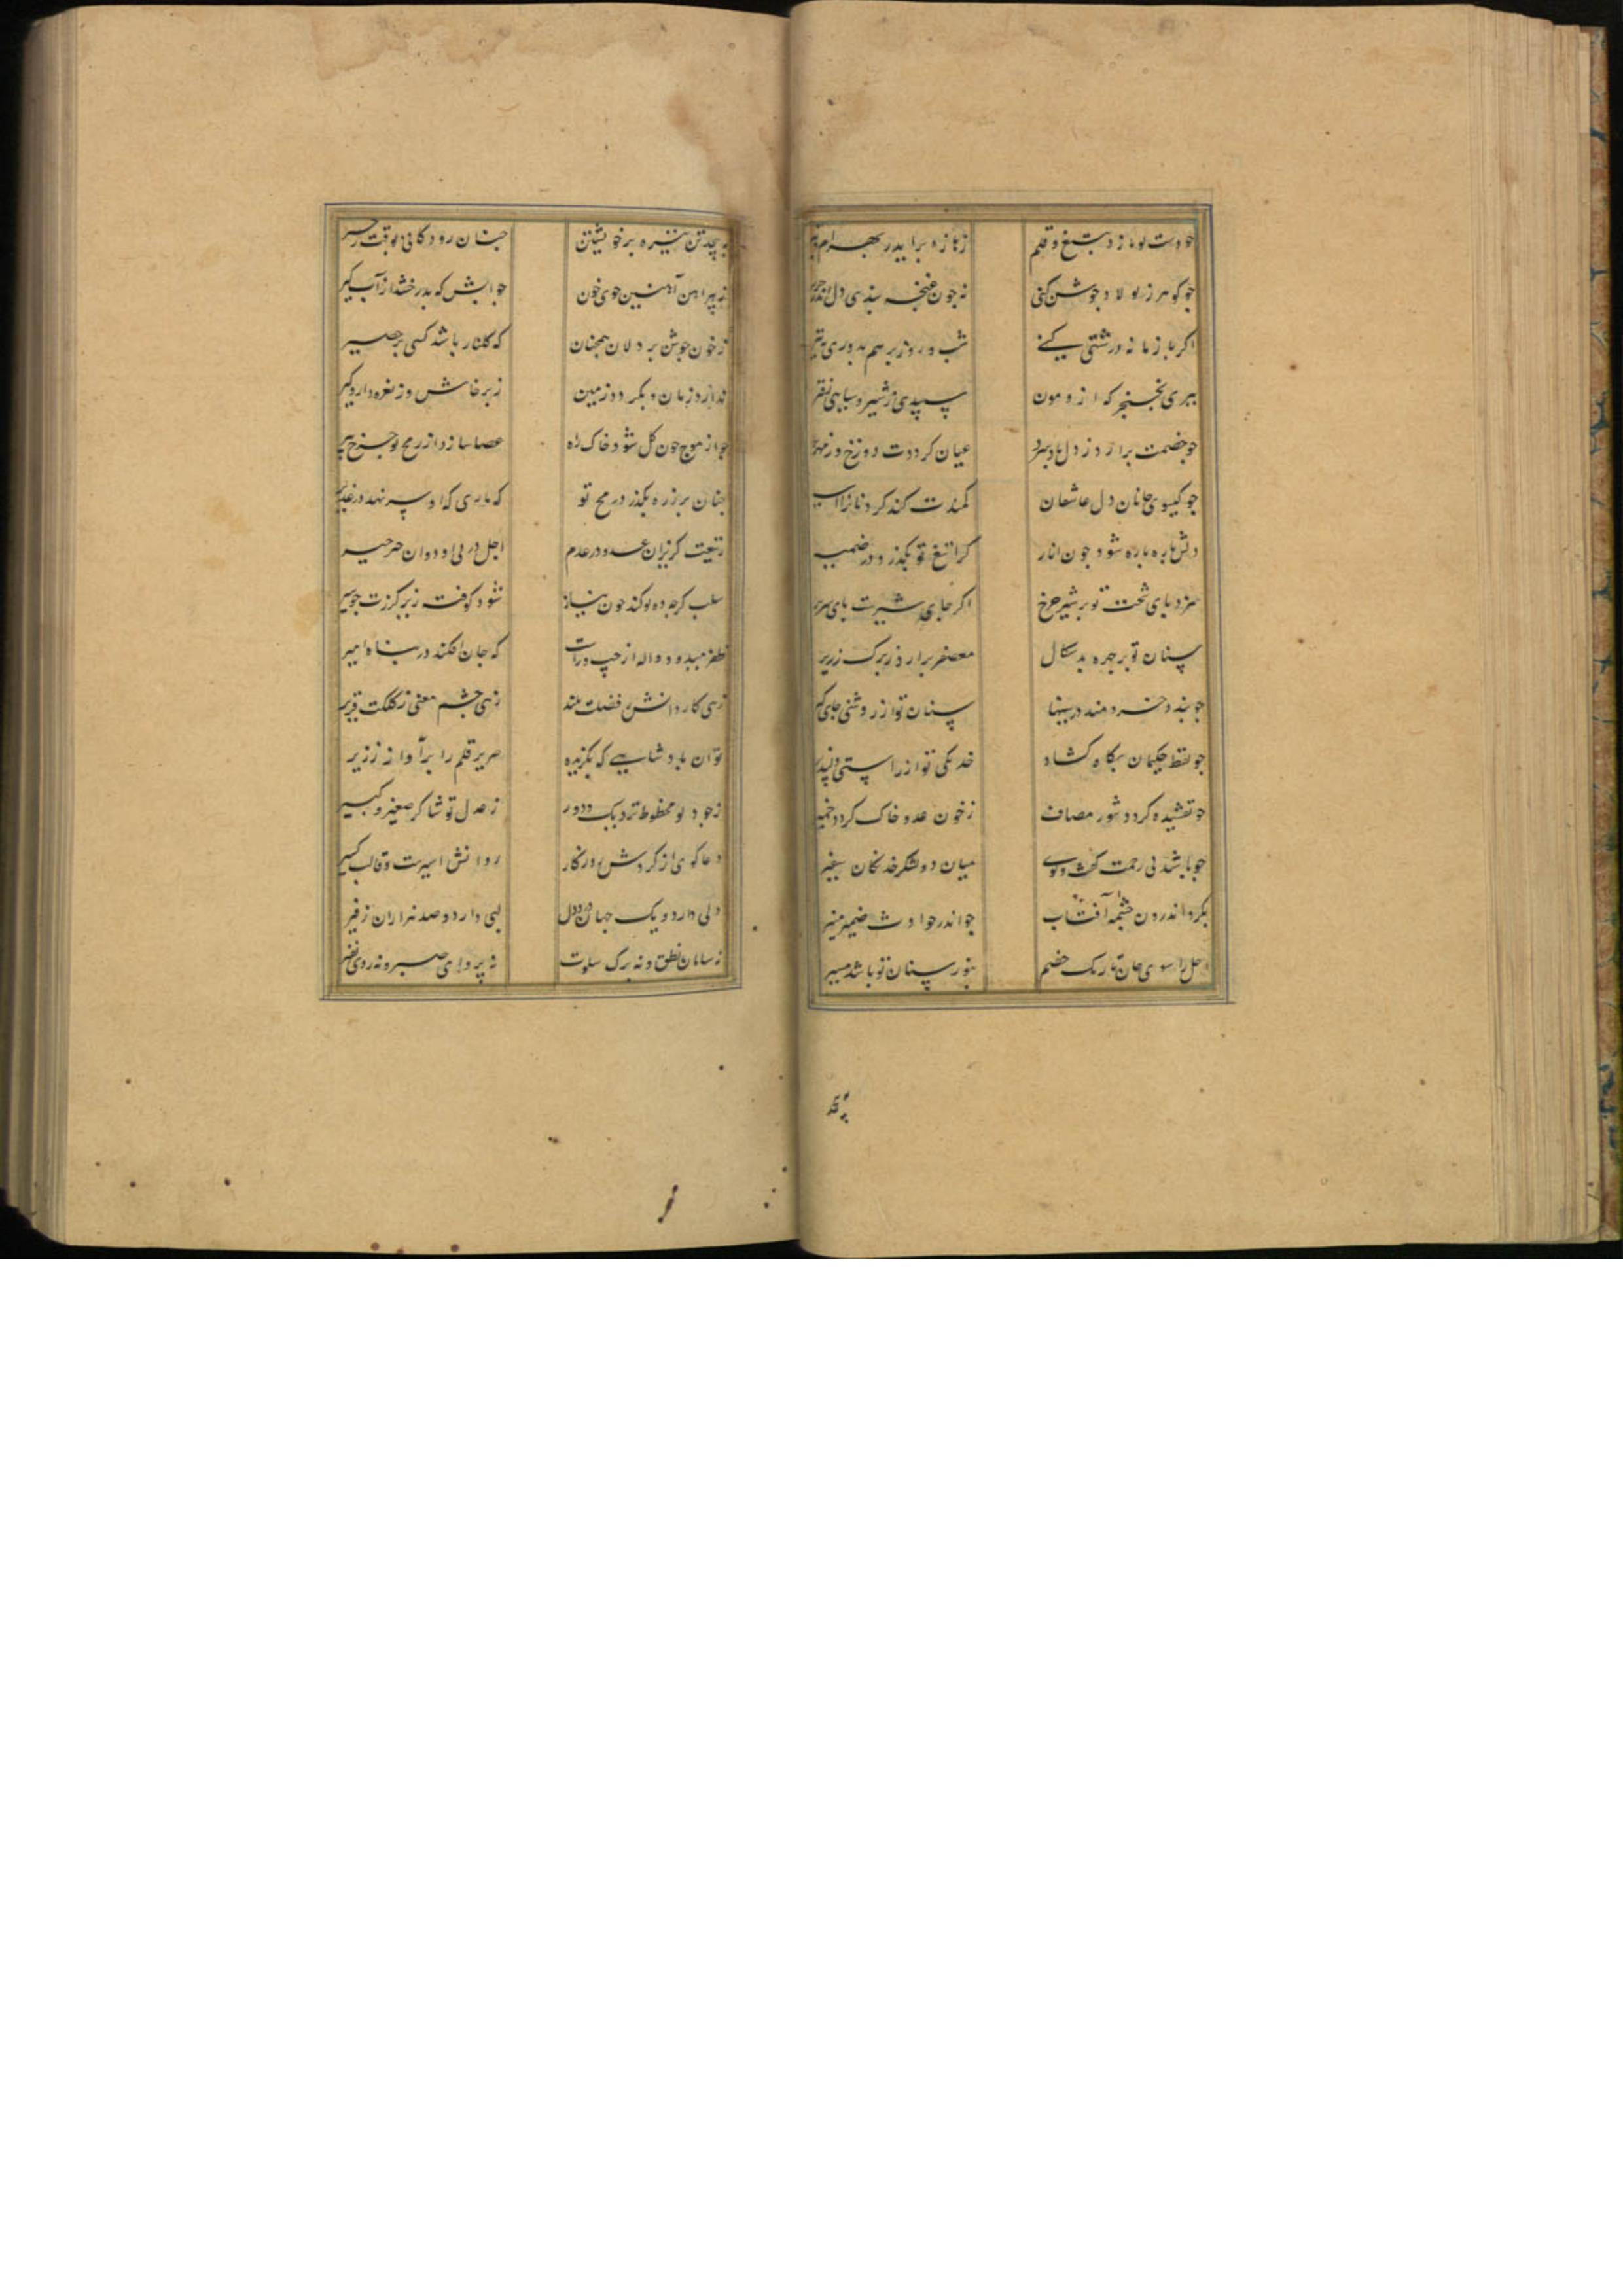 چو دست تو یازد بتیغ و قلم زبازو برآید ز بهرام
چو کوهر ز پولاد جوشن کنی نه چون غنچه بندی دل اندر
اکر با زمانه درشتی کنے شب و روز بر هم بدوزی
ببری بخنجر که از و مون سپیدی ز شیر و سیاهی ز قیر
چو خصمت برآرد ز دل باد سرد عیان کرددت دوزخ و زمهریر
چو کیسوی جانان دل عاشقان کمندت کند کردنانرا اسیر
دلش پاره پاره شود چون انار کرا تیغ تو بکذرد در ضمیر
سزد پای تخت تو بر شیر چرخ اکر جای شیرست پای سریر
سنان تو بر چهره بد سکال معصفر برآرد ز برک زریر
چو پند خردمند در سینها سنان تو از روشنی جای کیر
چو لفظ حکیمان بکاه کشاد خدنکی تو از راستی دلپذیر
چو تفتیده کردد تنور مصاف ز خون عدو خاک کردد خمیر
چو باشد پی رحمت کفت و کوے میان دو لشکر خدنکان سفیر
بکرداند رو ز چشمه آفتاب چو اندر حوادث ضمیر منیر
اجل را سوی جان تاریک خصم بنور سنان تو باشد مسیر
بپیچد تن نیزه بر خویشتن چنان رود کانی بوقت زحیر
ز پیراهن آهنین جوی خون چو آتش که بدرخشد از آب کیر
ز خون جوش بر دلان همچنان که کلنار باشد کسی بر حصیر
ندارد زمان و بکردد زمین ز پرخاش وز نعره دار و کیر
چو از موج خون کل شود خاک راه عصا سازد از رمح تو چرخ پیر
چنان بر زره بکذرد رمح تو که ماری که او سر نهد در غدیر
ز تیغت کریزان عدو در عدم اجل در پی او دوان خیر خیر
سلب کرچه ده تو کند چون پیاز شود کوفته زیر کرزت چو سیر
ظفر میدود واله از چپ و راست که جان افکند در پناه امیر
زهی کار دانش ز فضلت بلند زهی چشم معنی ز کلکت قریر
تو آن پادشاهیے که بکزیده صریر قلم را بر آواز زیر
ز جود تو محظوظ نزدیک و دور ز عدل تو شاکر صغیر و کبیر
دعا کوی از کردش روزکار روانش اسیرست و قالب کسیر
دلی دارد و یک جهان درد دل لبی دارد و صد هزاران زفیر
نه سامان نطق و نه برک سکوت نه پروای صبر و نه روی نفیر